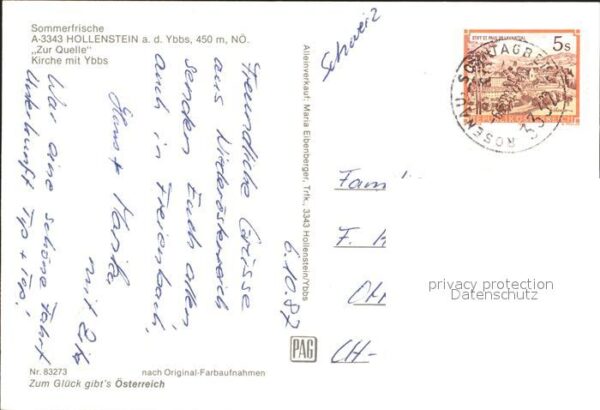 Sommerfrische
A-3343 HOLLENSTEIN a. d. Ybbs, 450 m, NÖ.
„Zur Quelle"
Kirche mit Ybbs
Schweiz
5s
REPUBLIK ÖSTERREICH
ROSENAU SONNTAGBERG
3332
Alleinverkauf: Maria Eibenberger, Trfk., 3343 Hollenstein/Ybbs
6.10.87
Freundliche Grüsse
aus Niederösterreich
senden Euch allen
auch in Freienbach,
Hans + Marika
mit
War eine schöne Fahrt
Unterkunft Tip + Top!
Fam
F. H
CH-
privacy protection
Datenschutz
PAG
Nr. 83273
nach Original-Farbaufnahmen
Zum Glück gibt's Österreich